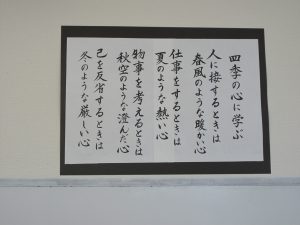 四季の心に学ぶ
人に接するときは
春風のような暖かい心
仕事をするときは
夏のような熱い心
物事を考えるときは
秋空のような澄んだ心
己を反省するときは
冬のような厳しい心